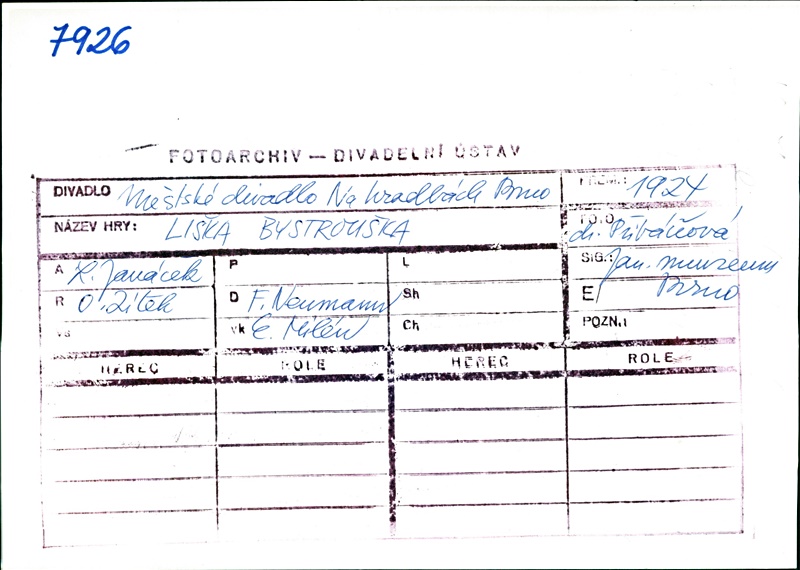 7926
FOTOARCHIV — DIVADELNÍ ÚSTAV
DIVADLO Městské divadlo Na hradbách Brno
PREM.: 1924
NÁZEV HRY: LIŠKA BYSTROUŠKA
FOTO
SIG.: Jan. muzeum
Brno
A L. Janáček
P
L
R O. Zítek
D F. Neumann
Sh
E/
vs
vk E. Milén
Ch
POZN.:
HEREC ROLE HEREC ROLE